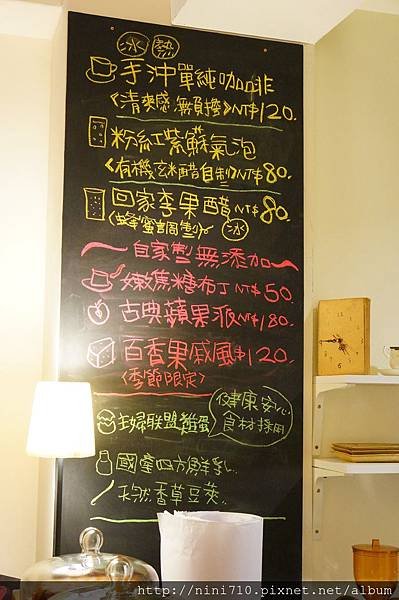 冰 熱
手沖單純咖啡
《清爽感.無負擔》NT$120.
粉紅紫蘇氣泡
《有機玄米醋自製》NT$80.
回家李果醋NT$80.
《蜂蜜調製》冰
自家製無添加
嫩焦糖布丁NT$50
古典蘋果派NT$180.
百香果戚風$120.
《季節限定》
主婦聯盟雞蛋
健康安心
食材採用
國產四方鮮乳.
天然香草豆莢.
http://nini710.pixnet.net/album